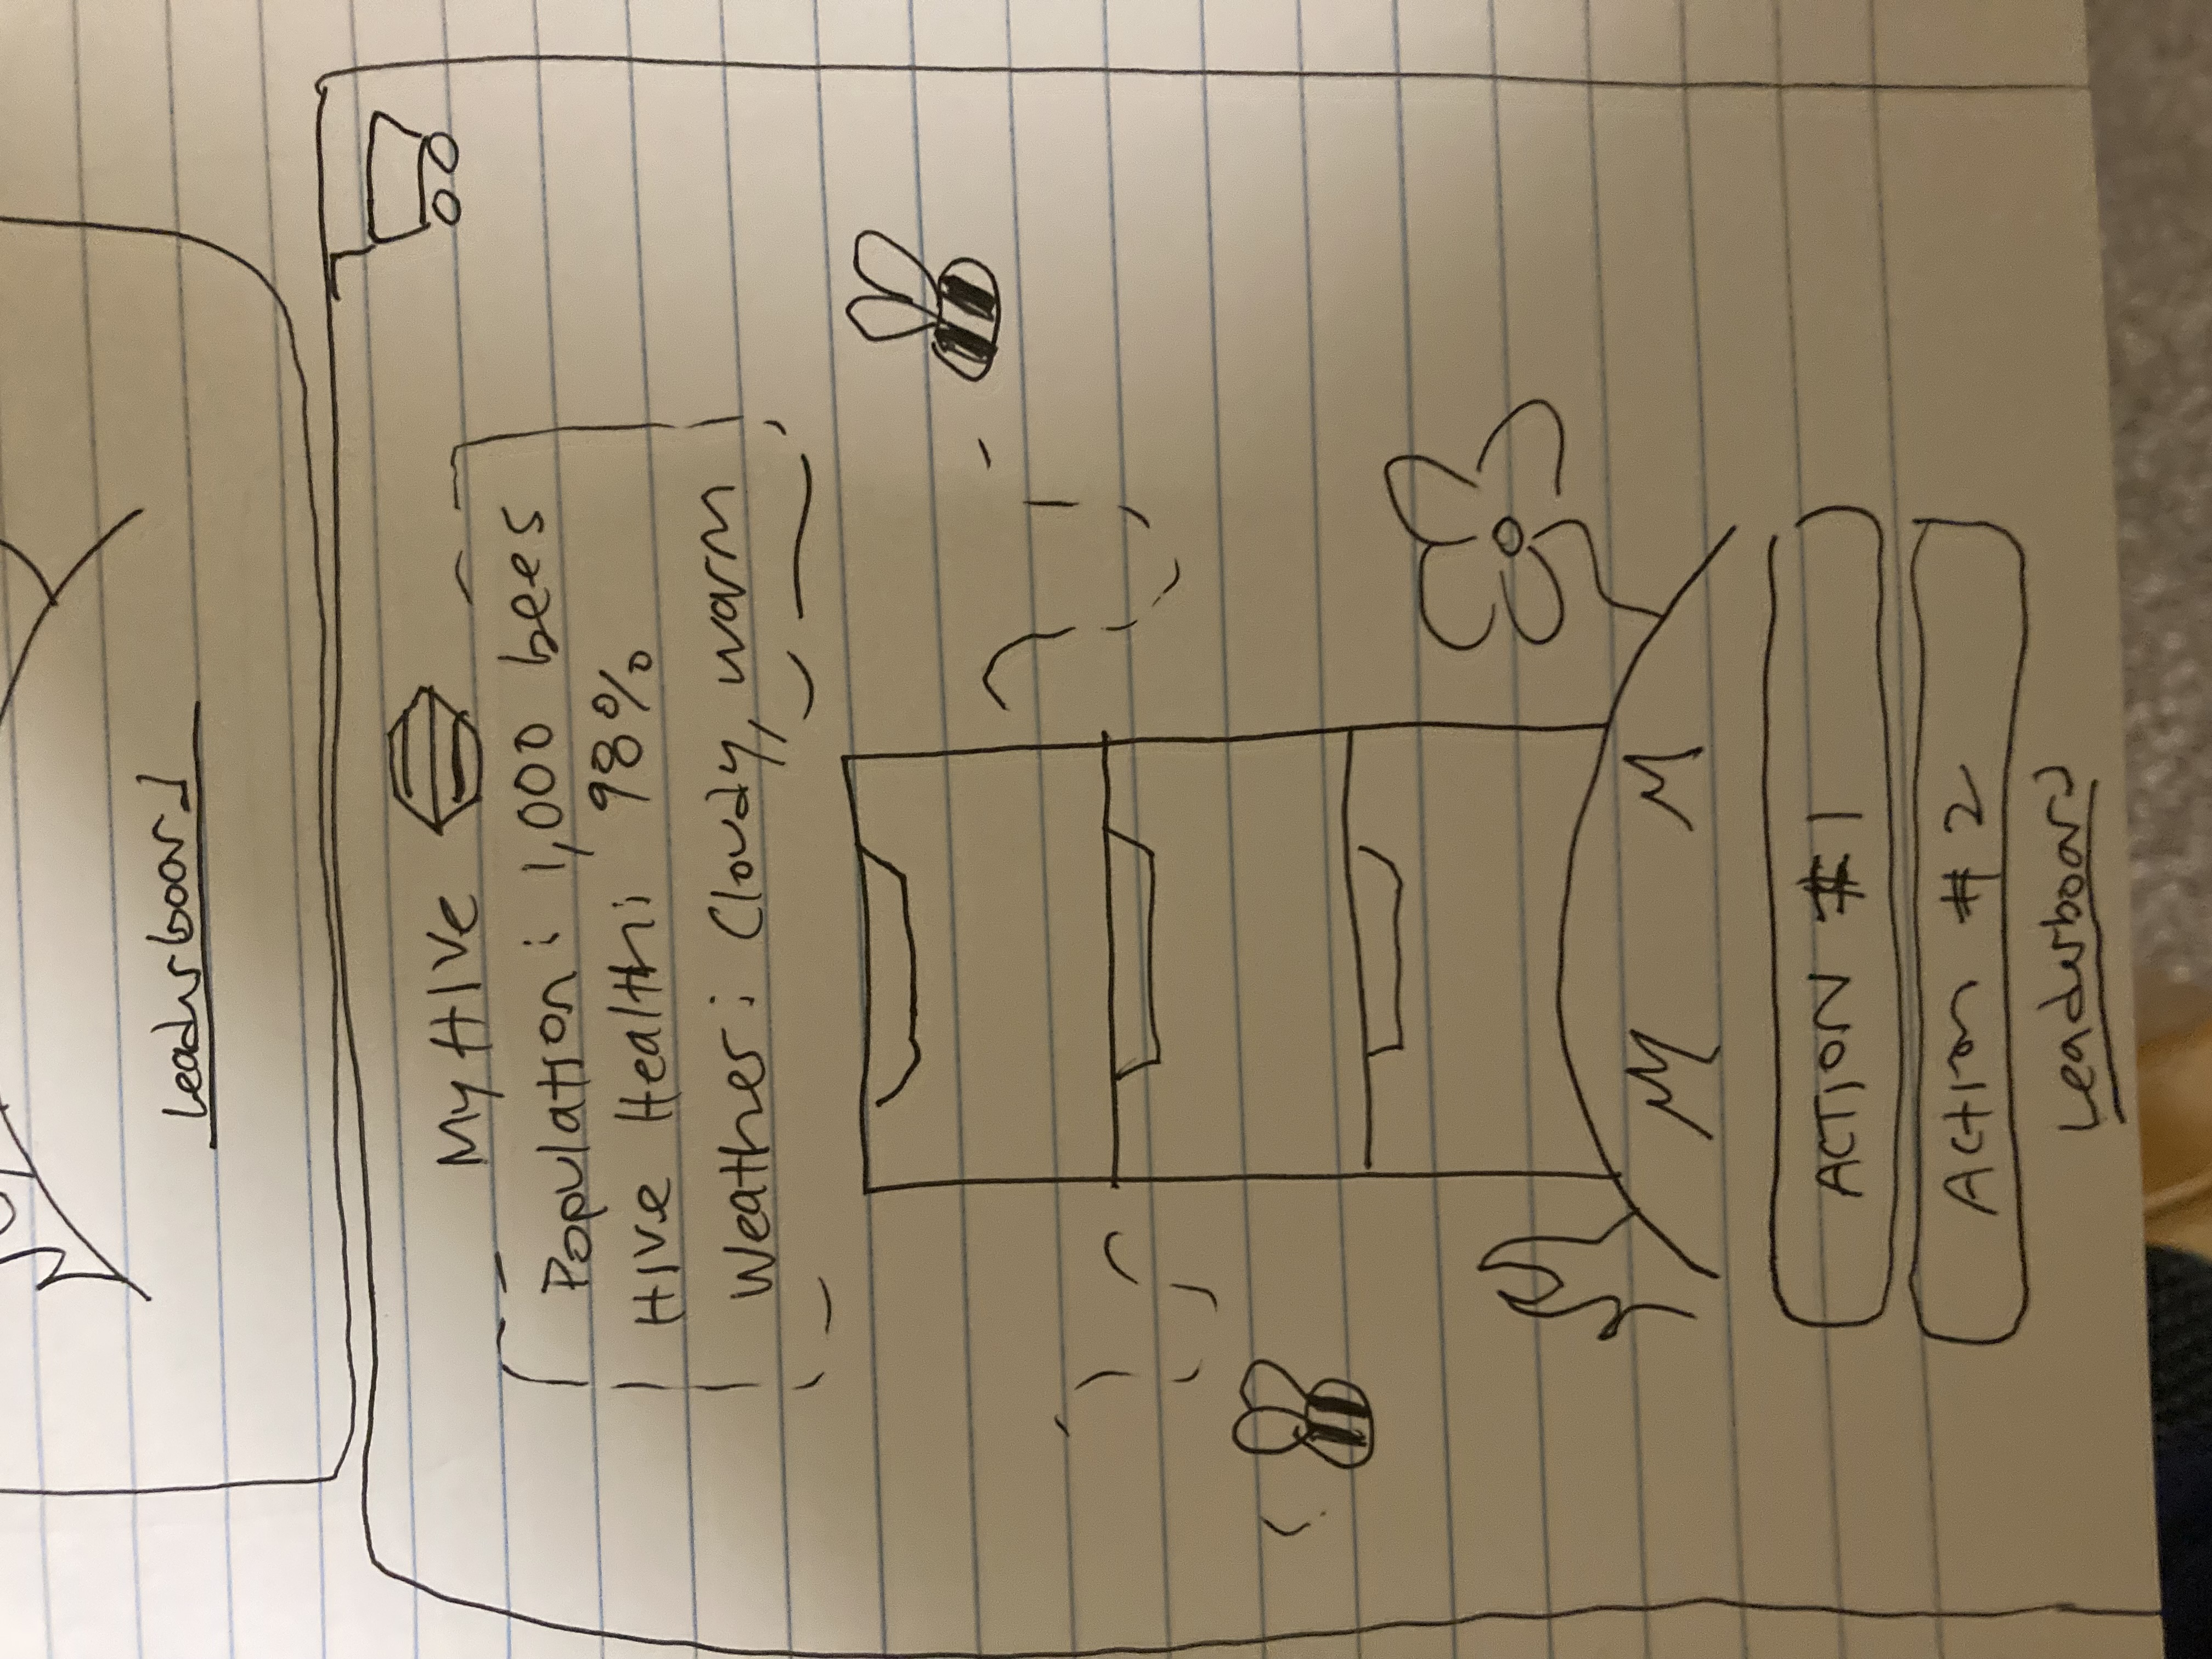 Leaderboard
My Hive
Population: 1,000 bees
Hive Health: 98%
Weather: Cloudy, warm
ACTION #1
Action #2
Leaderboard